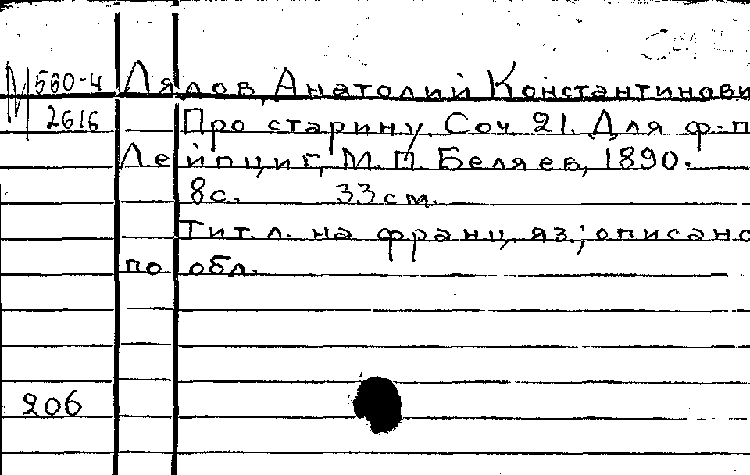 М 560-4 Лядов, Анатолий Константинови
2616 Про старину. Соч. 21. Для ф-п
Лейпциг, М. П. Беляев, 1890.
8с. 33см.
Тит. л. на франц. яз.; описано
по обл.
206